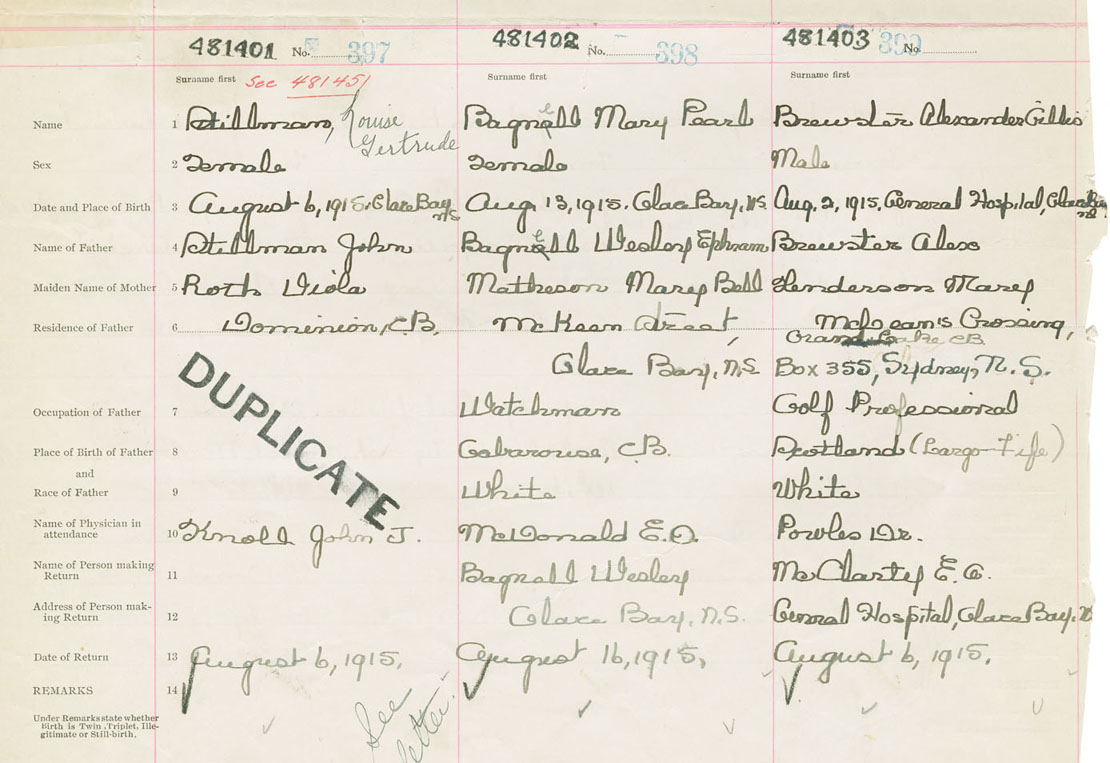 481401 No. 397 481402 No. 398 481403 No.
Surname first See 481451 Surname first Surname first
Name 1 Stillman, Louise Gertrude Bagnell Mary Pearl Brewster Alexander Gillis
Sex 2 Female Female Male
Date and Place of Birth 3 August 6, 1915. Glace Bay NS Aug. 13, 1915. Glace Bay, NS Aug. 2, 1915. General Hospital, Glace Bay
Name of Father 4 Stillman John Bagnell Wesley Ephram Brewster Alex
Maiden Name of Mother 5 Roth Viola Matheson Mary Bell Henderson Mary
Residence of Father 6 Dominion, CB. McKeen Street, McLean's Crossing,
Grand Lake CB
Glace Bay, N.S Box 355, Sydney, N.S.
DUPLICATE
Occupation of Father 7 Watchman Golf Professional
Place of Birth of Father 8 Gabarouse, CB. Scotland (Largo-Fife)
and
Race of Father 9 White White
Name of Physician in
attendance 10 Knoll John J. McDonald E.O. Powles Dr.
Name of Person making
Return 11 Bagnall Wesley McClarty E.
Address of Person mak-
ing Return 12 Glace Bay, N.S. General Hospital, Glace Bay,
Date of Return 13 August 6, 1915. August 16, 1915. August 6, 1915.
REMARKS 14
See
letter.
Under Remarks state whether
Birth is Twin, Triplet, Ille-
gitimate or Still-birth.